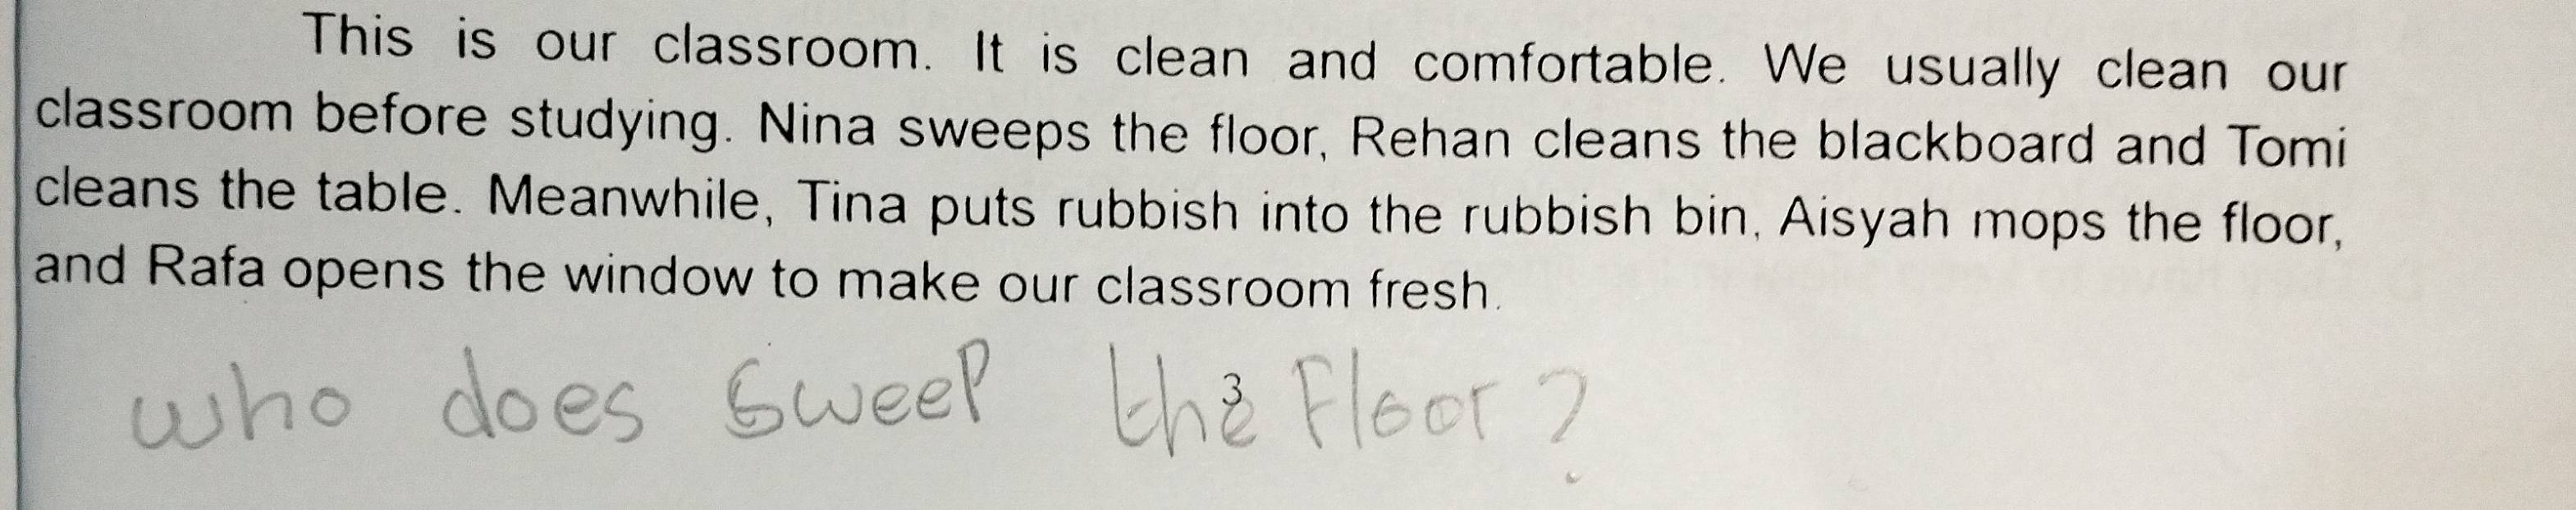 This is our classroom. It is clean and comfortable. We usually clean our
classroom before studying. Nina sweeps the floor, Rehan cleans the blackboard and Tomi
cleans the table. Meanwhile, Tina puts rubbish into the rubbish bin, Aisyah mops the floor,
and Rafa opens the window to make our classroom fresh.
who does sweep the Floor?
3